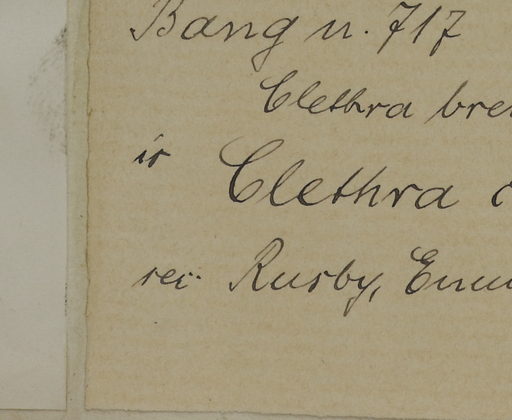 Bang n. 717
Clethra bre
is Clethra
Rusby, Enu